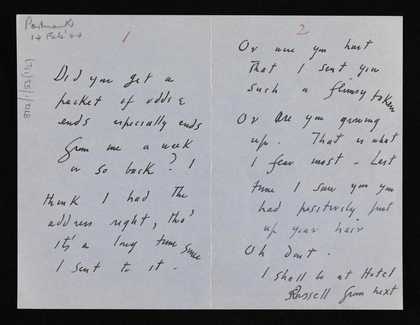 Postmark
14 Feb' 44
1
Did you get a
packet of odds &
ends especially ends
from me a week
or so back? I
think I had the
address right, tho'
it's a long time since
I sent to it -
2
Or were you hurt
That I sent you
such a flimsy token
Or are you growing
up. That is what
I fear most - Last
time I saw you you
had positively put
up your hair
Oh dont.
I shall be at Hotel
Russell from next